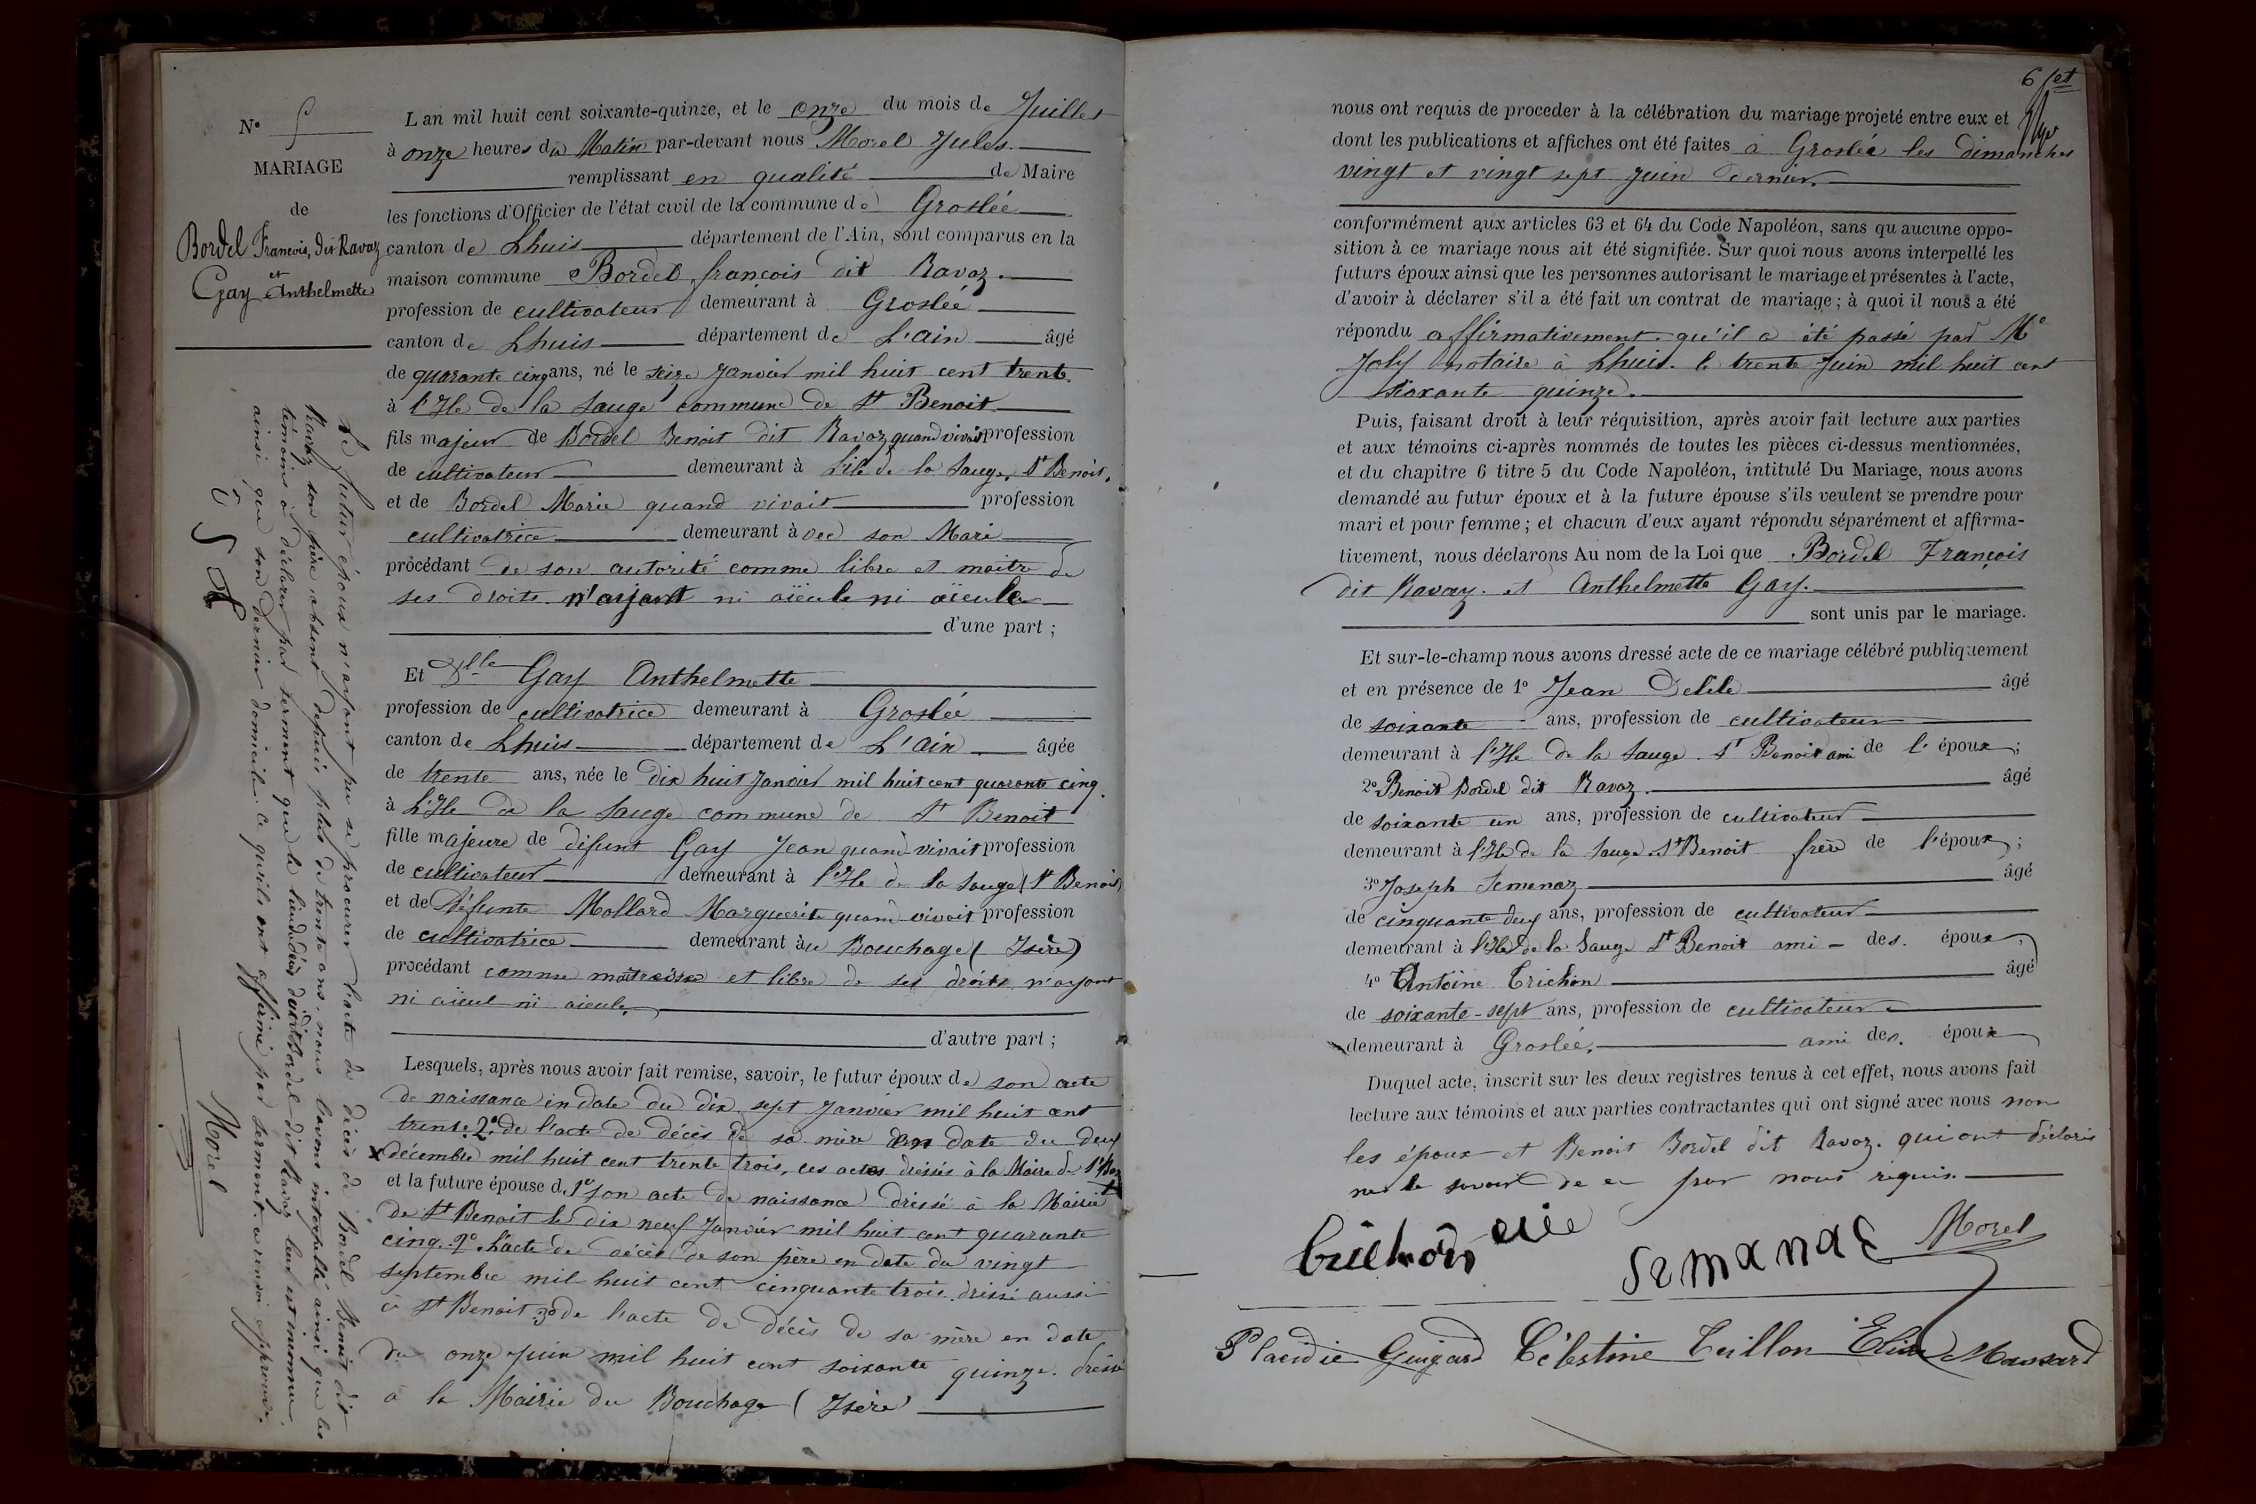 N° 5
MARIAGE
de
Bordel François, dit Ravaz
et
Gay Anthelmette
L'an mil huit cent soixante-quinze, et le onze du mois de Juillet
à onze heures du Matin par-devant nous Morel Jules.
remplissant en qualité de Maire
les fonctions d'Officier de l'état civil de la commune de Groslée
canton de Lhuis département de l'Ain, sont comparus en la
maison commune Bordel françois dit Ravaz.
profession de cultivateur demeurant à Groslée
canton de Lhuis département de L'ain âgé
de quarante cinq ans, né le seize Janvier mil huit cent trente.
à l'Ile de la Sauge commune de St Benoit
fils majeur de Bordel Benoit dit Ravaz quand vivait profession
de cultivateur demeurant à L'ile de la Sauge, St Benoit.
et de Bordel Marie quand vivait profession
cultivatrice demeurant avec son Mari
procédant de son autorité comme libre et maitre de
ses droits n'ayant ni aïeule ni aïeule
d'une part ;
Et Dlle Gay Anthelmette
profession de cultivatrice demeurant à Groslée
canton de Lhuis département de L'ain âgée
de trente ans, née le dix huit Janvier mil huit cent quarante cinq.
à L'Ile de la Sauge commune de St Benoit
fille majeure de défunt Gay Jean quand vivait profession
de cultivateur demeurant à l'Ile de la Sauge (St Benoit)
et de défunte Mollard Marguerite quand vivait profession
de cultivatrice demeurant au Bouchage (Isère)
procédant comme maitresse et libre de ses droits n'ayant
ni aïeul ni aieule.
d'autre part ;
Lesquels, après nous avoir fait remise, savoir, le futur époux de son acte
de naissance en date du dix sept Janvier mil huit cent
trente. 2° de l'acte de décès de sa mère en date du deux
décembre mil huit cent trente trois, ces actes dressés à la Mairie de St Ben
et la future épouse d 1° son acte de naissance dressé à la Mairie
de St Benoit le dix neuf Janvier mil huit cent quarante
cinq. 2° L'acte de décès de son père en date du vingt
septembre mil huit cent cinquante trois. dressé aussi
à St Benoit 3° de l'acte de décès de sa mère en date
du onze Juin mil huit cent soixante quinze. dressé
à la Mairie du Bouchage (Isère)
Le futur époux n'ayant pu se procurer l'acte de décès de Bordel Benoit dit
Ravaz son père absent depuis plus de trente ans, nous l'avons interpellé ainsi que les
témoins à déclarer par serment que le lieu du décès dudit Bordel dit Ravaz leur est inconnu
ainsi que son dernier domicile. ce qu'ils ont affirmé par serment. a renvoi approuvé.
Morel
6 fet
nous ont requis de proceder à la célébration du mariage projeté entre eux et
dont les publications et affiches ont été faites à Groslée les dimanches
vingt et vingt sept Juin dernier.
conformément aux articles 63 et 64 du Code Napoléon, sans qu aucune oppo-
sition à ce mariage nous ait été signifiée. Sur quoi nous avons interpellé les
futurs époux ainsi que les personnes autorisant le mariage et présentes à l'acte,
d'avoir à déclarer s'il a été fait un contrat de mariage ; à quoi il nous a été
répondu affirmativement. qu'il a été passé par Me
Joly notaire à Lhuis. le trente Juin mil huit cent
soixante quinze.
Puis, faisant droit à leur réquisition, après avoir fait lecture aux parties
et aux témoins ci-après nommés de toutes les pièces ci-dessus mentionnées,
et du chapitre 6 titre 5 du Code Napoléon, intitulé Du Mariage, nous avons
demandé au futur époux et à la future épouse s'ils veulent se prendre pour
mari et pour femme ; et chacun d'eux ayant répondu séparément et affirma-
tivement, nous déclarons Au nom de la Loi que Bordel François
dit Ravaz. et Anthelmette Gay.
sont unis par le mariage.
Et sur-le-champ nous avons dressé acte de ce mariage célébré publiquement
et en présence de 1° Jean Delile âgé
de soixante ans, profession de cultivateur
demeurant à l'Ile de la Sauge. St Benoit ami de l'époux ;
2° Benoit Bordel dit Ravaz. âgé
de soixante un ans, profession de cultivateur
demeurant à l'Ile de la Sauge. St Benoit frère de l'époux ;
3° Joseph Semenaz âgé
de cinquante deux ans, profession de cultivateur
demeurant à l'Ile de la Sauge St Benoit ami des époux,
4° Antoine Trichon âgé
de soixante-sept ans, profession de cultivateur
demeurant à Groslée. ami des époux
Duquel acte, inscrit sur les deux registres tenus à cet effet, nous avons fait
lecture aux témoins et aux parties contractantes qui ont signé avec nous non
les époux et Benoit Bordel dit Ravaz. qui ont déclaré
ne le savoir de ce par nous requis.
Trichon
Semanaz Morel
Placidie Guigard Célestine Teillon Elise Massard